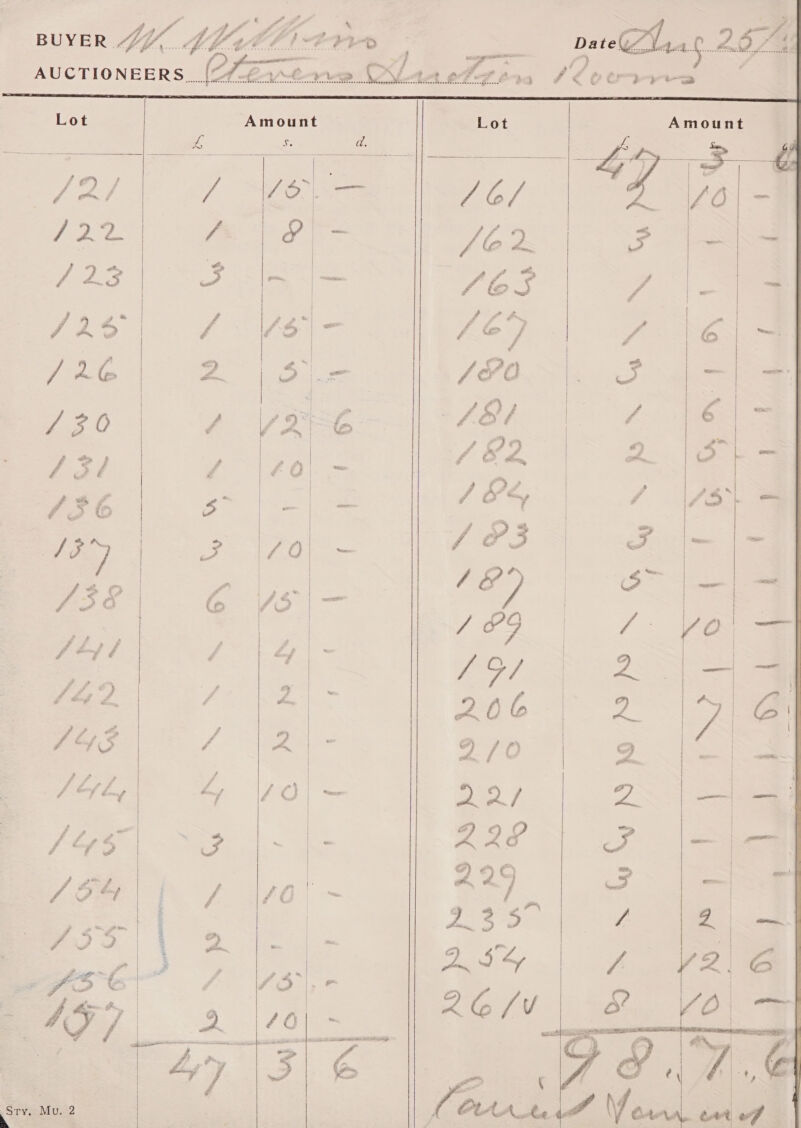 BUYER W. Wilkins Date Aug 25/
AUCTIONEERS Stevens Auction Rooms
Lot Amount
£ s. d.
121 1 15 —
122 1 8 —
123 3 — —
125 1 15 —
126 2 5 —
130 1 12 6
131 1 10 —
136 5 — —
137 3 10 —
138 6 15 —
141 1 4 -
142 1 2 -
143 1 2 -
144 4 10 —
145 3 - -
154 1 10 -
155 2 - -
156 1 15 -
157 2 10 -
47 3 6
STY. MU. 2
Lot Amount
£ s. d.
47 3 6
161 2 10 —
162 3 — —
163 1 - -
167 1 6 -
180 3 — —
181 1 6 —
182 2 5 —
184 1 15 —
183 3 — —
187 5 — —
189 1 10 —
191 2 — —
206 2 7 6
210 2 — —
221 2 — —
228 3 — —
229 3 — —
235 1 2 —
254 1 12 6
261 8 10 —
98 . 7 . 6
Carried